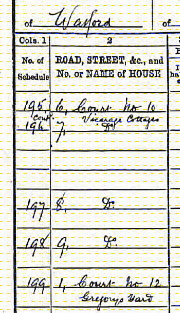 of Watford of
Cols. 1 2
No. of Schedule ROAD, STREET, &c., and No. or NAME of HOUSE
195 6, Court No 10
Cont. Vicarage Cottages
196 7, Do
197 8, Do
198 9, Do
199 1, Court No 12
Gregorys Yard